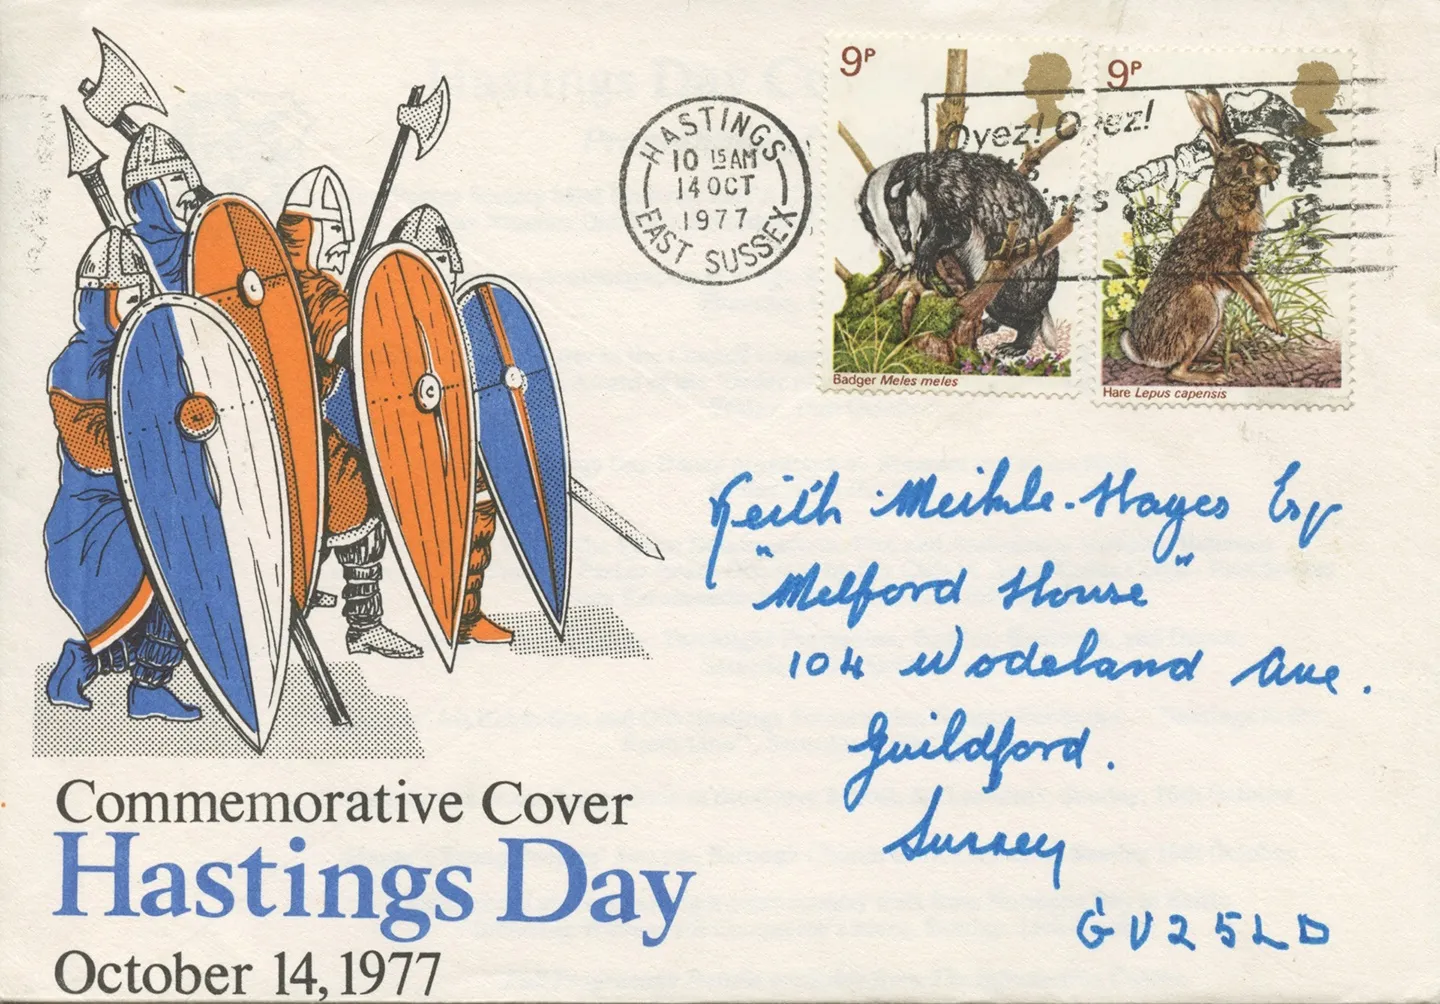 HASTINGS
10 15 AM
14 OCT
1977
EAST SUSSEX
9P
9P
Oyez! Oyez!
Day
Badger Meles meles
Hare Lepus capensis
Keith Meikle-Hayes Esq
"Melford House"
104 Wodeland Ave.
Guildford.
Surrey
GU25LD
Commemorative Cover
Hastings Day
October 14, 1977